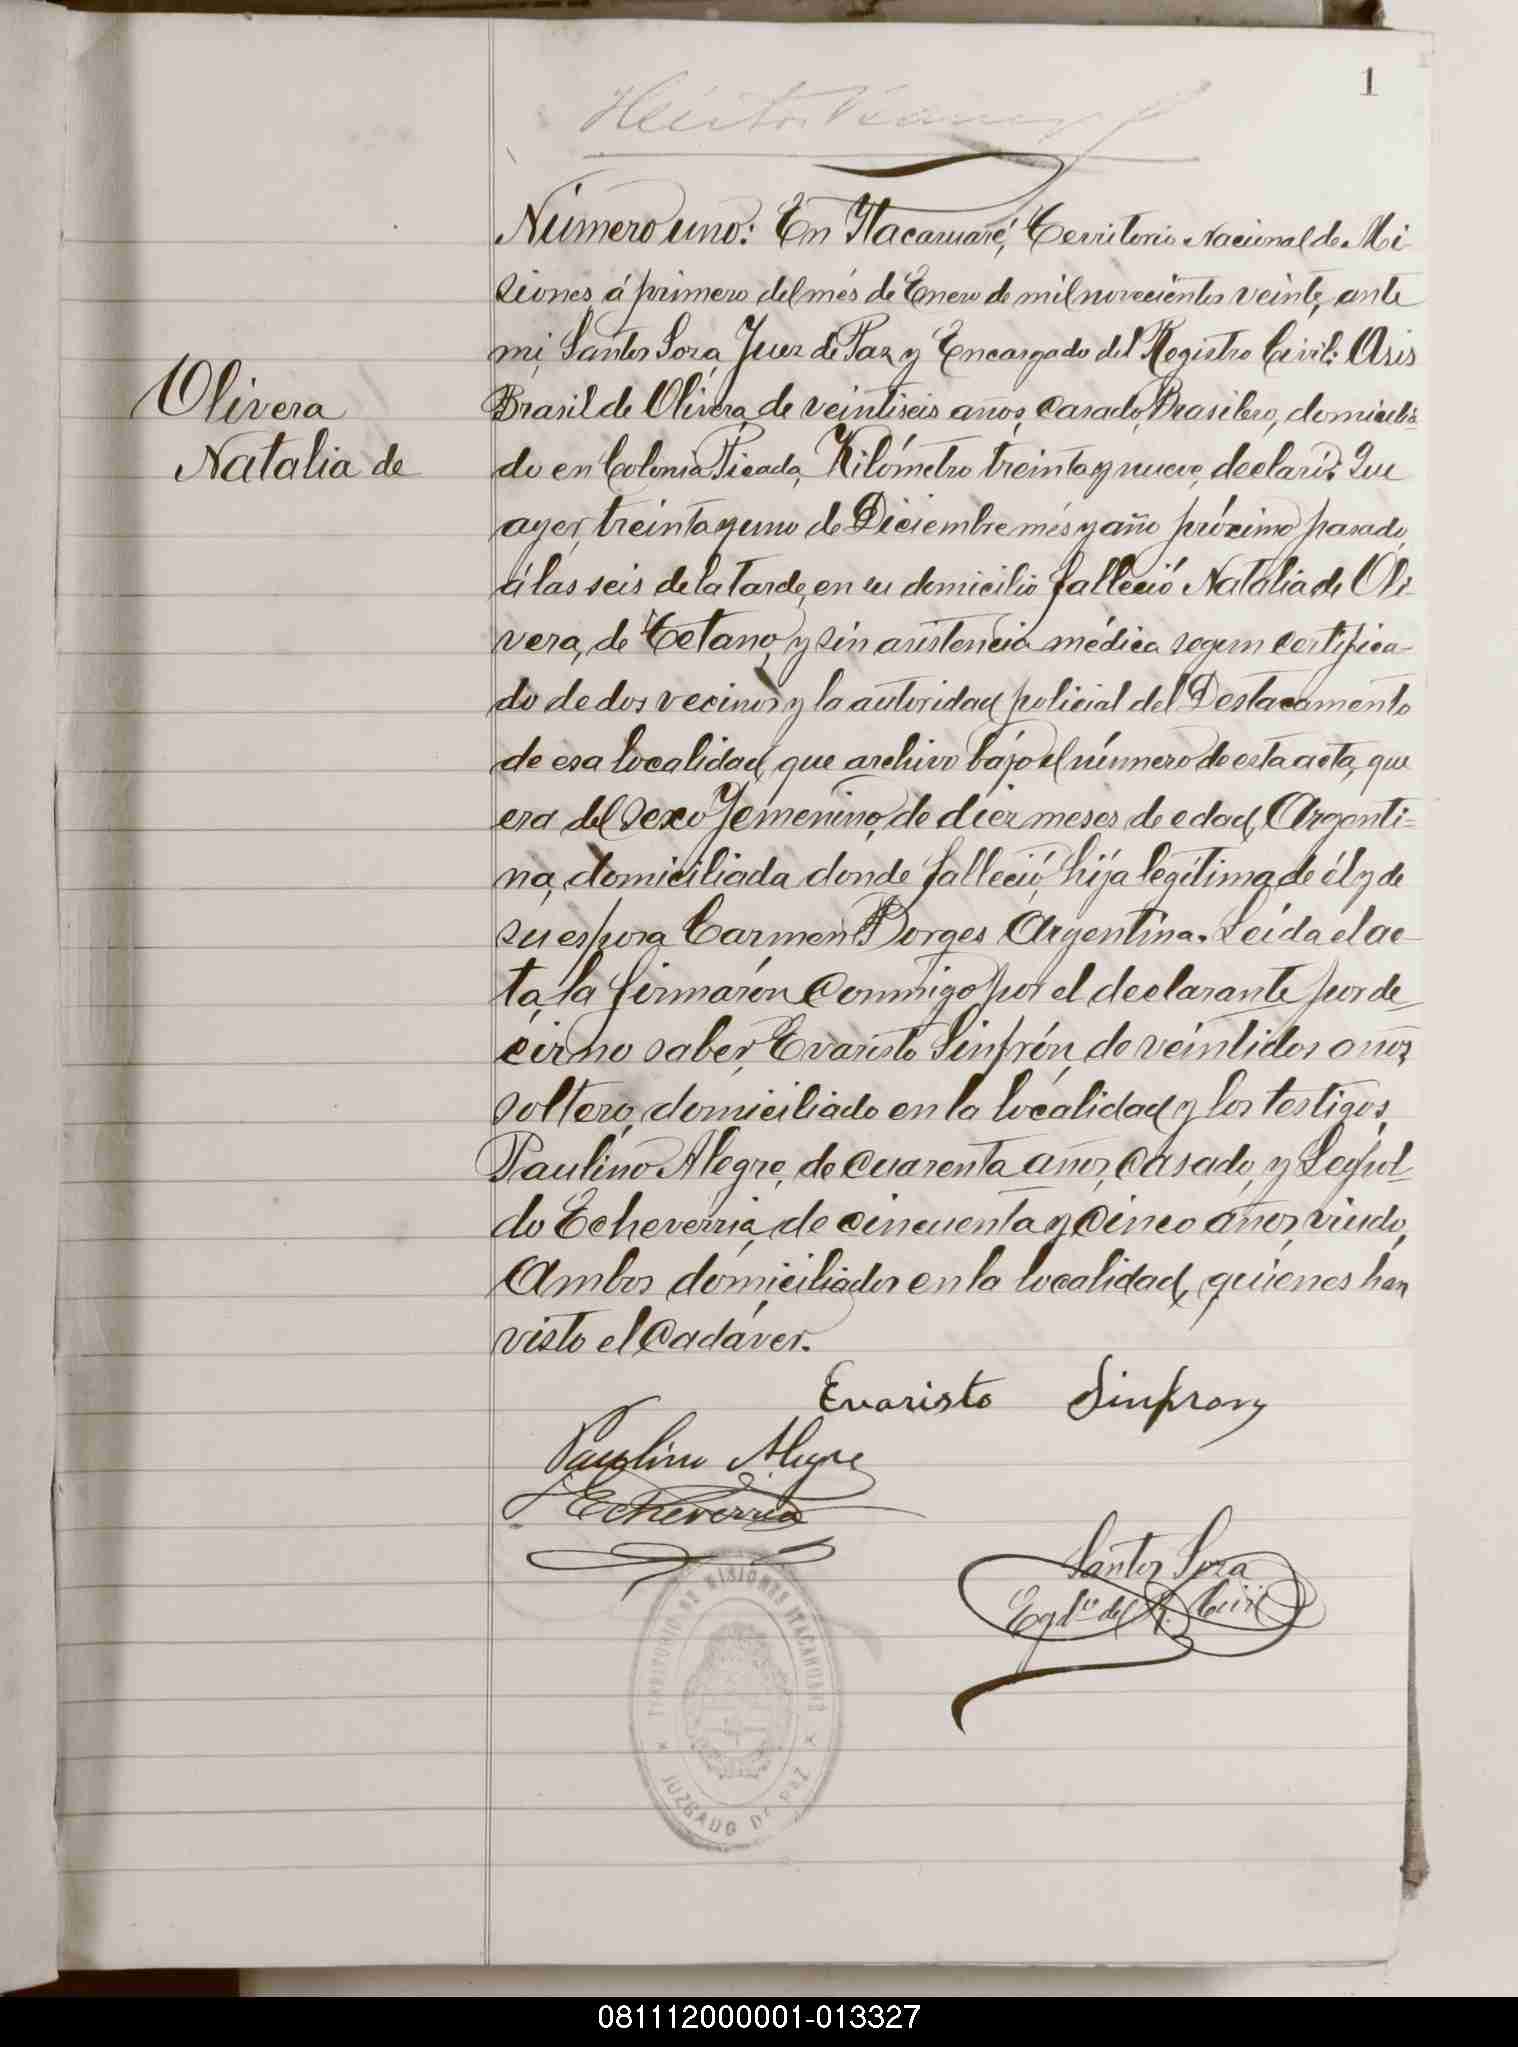 1
Número uno: En Ytacaruaré, Territorio Nacional de Mi-
siones, á primero del més de Enero de mil novecientos veinte, ante
mi, Santos Soza, Juez de Paz y Encargado del Registro Civil: Asis
Brasil de Olivera, de veintiseis años, casado, Brasilero, domicilia-
do en Colonia Picada, Kilómetro treinta y nueve, declaró: Que
ayer, treinta y uno de Diciembre més y año próximo pasado,
á las seis de la tarde, en su domicilio falleció Natalia de Oli-
vera, de Tetano, y sin asistencia médica segun certifica-
do de dos vecinos y la autoridad policial del Destacamento
de esa localidad, que archivo bájo el número de esta acta, que
era del sexo Femenino, de diez meses de edad, Argenti=
na, domiciliada donde falleció, hija legítima de él y de
su esposa Carmen Borges Argentina. Leida el ac-
ta, la firmarón conmigo por el declarante por de-
cir no saber, Evaristo Sinfrón, de veintidos años,
soltero, domiciliado en la localidad y los testigos,
Paulino Alegre, de cuarenta años, casado, y Leopol-
do Echeverria, de cincuenta y cinco años, viudo,
Ambos domiciliados en la localidad, quienes han
visto el cadáver.
Olivera
Natalia de
Evaristo Sinfron
Paulino Alegre
Echeverria
Santos Soza
Egdo. del R. Civil
TERRITORIO DE MISIONES ITACARUARE
JUZGADO DE PAZ
081112000001-013327